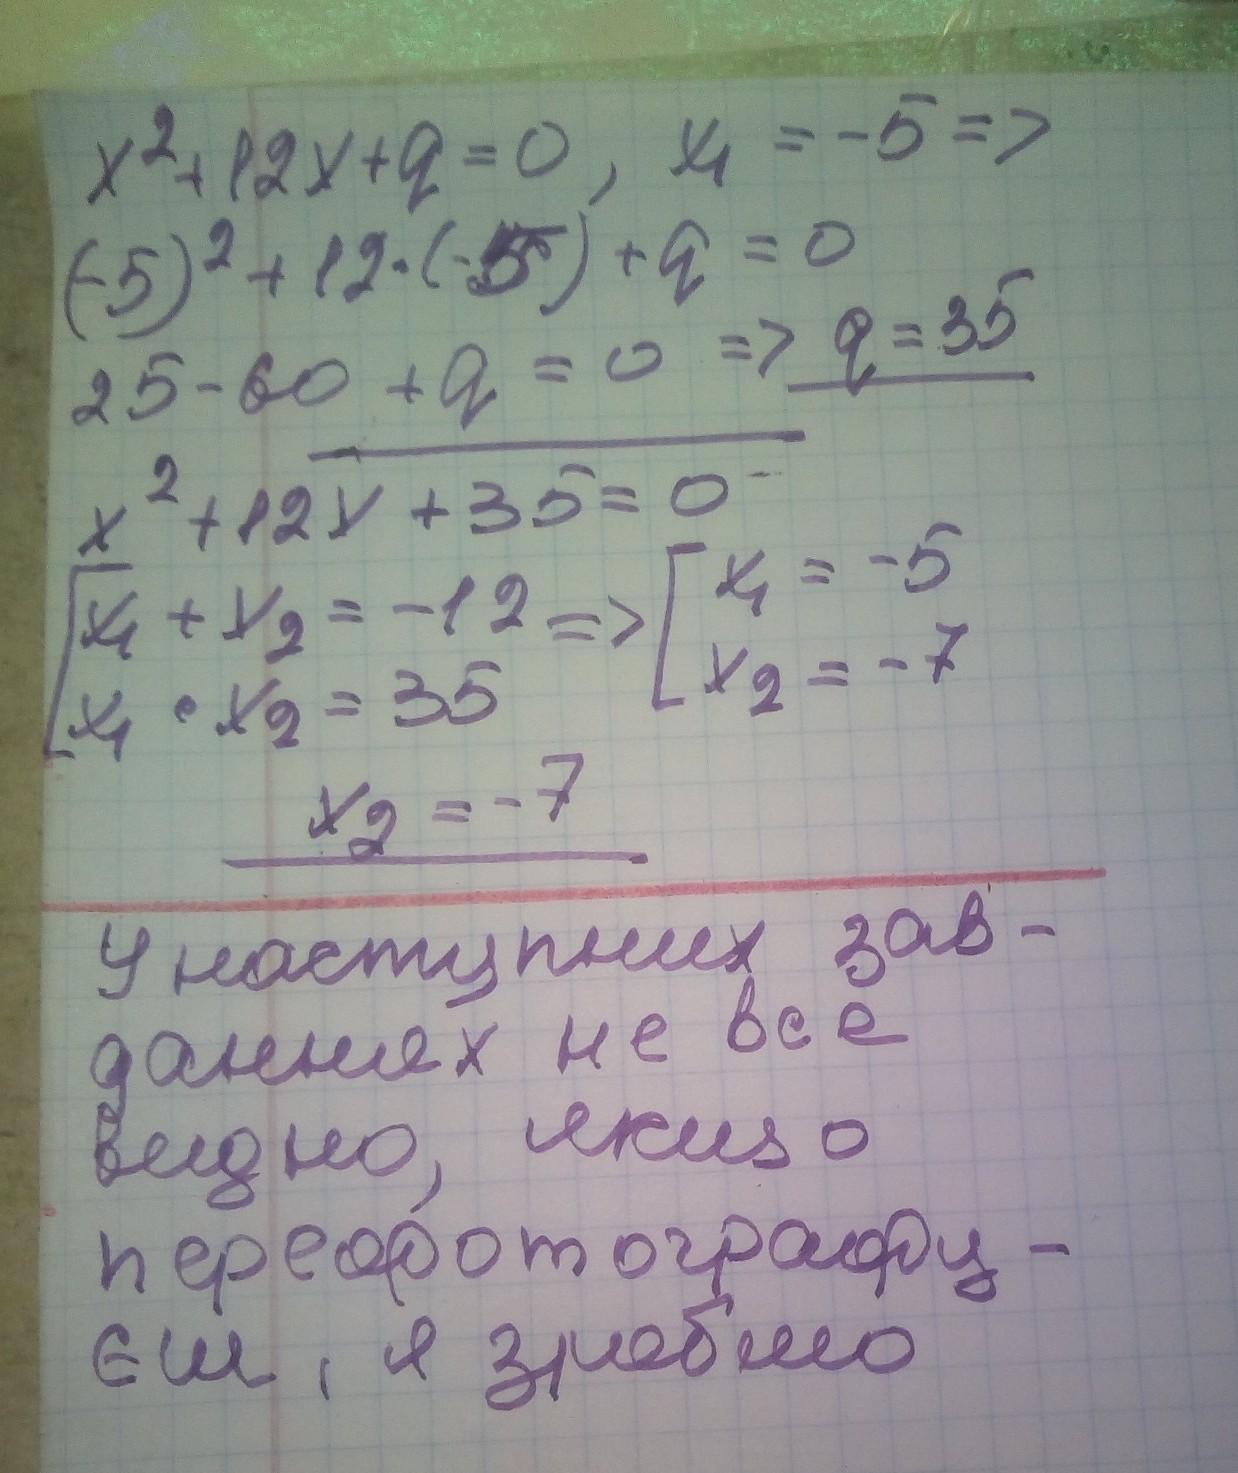 x² + 12x + q = 0, x₁ = -5 =>
(-5)² + 12·(-5) + q = 0
25 - 60 + q = 0 => q = 35
x² + 12x + 35 = 0
[x₁ + x₂ = -12 => [x₁ = -5
x₁ · x₂ = 35 x₂ = -7
x₂ = -7
У наступних зав-
даннях не все
видно, якщо
перефотографу-
єш, я зроблю